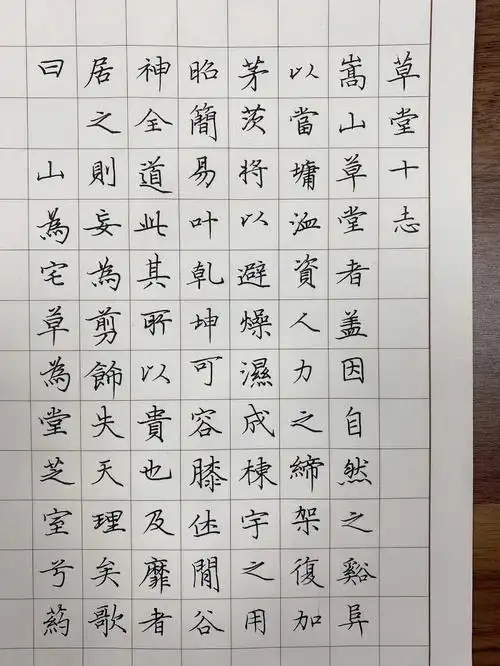 草堂十志
嵩山草堂者盖因自然之谿阜
以當墉洫資人力之締架復加
茅茨將以避燥濕成棟宇之用
昭簡易叶乹坤可容膝休閒谷
神全道此其所以貴也及靡者
居之則妄為剪餙失天理矣歌
曰 山為宅草為堂芝室兮葯